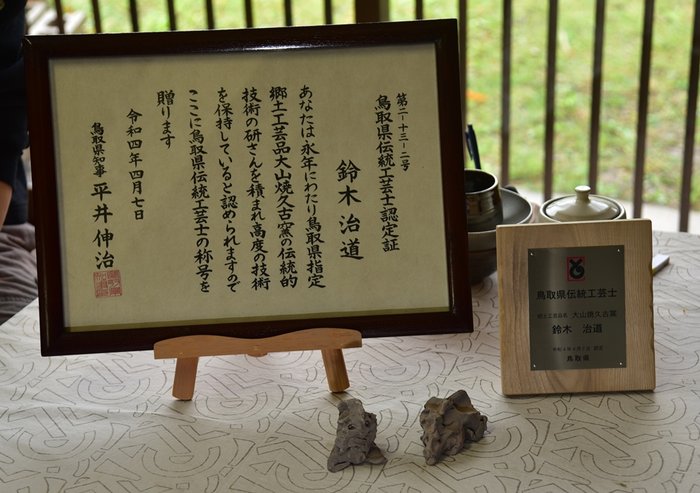 第二－十三－二号
鳥取県伝統工芸士認定証
鈴木治道
あなたは永年にわたり鳥取県指定
郷土工芸品大山焼久古窯の伝統的
技術の研さんを積まれ高度の技術
を保持していると認められますので
ここに鳥取県伝統工芸士の称号を
贈ります
令和四年四月七日
鳥取県知事 平井伸治
鳥取県伝統工芸士
郷土工芸品名 大山焼久古窯
鈴木 治道
令和4年4月7日 認定
鳥取県